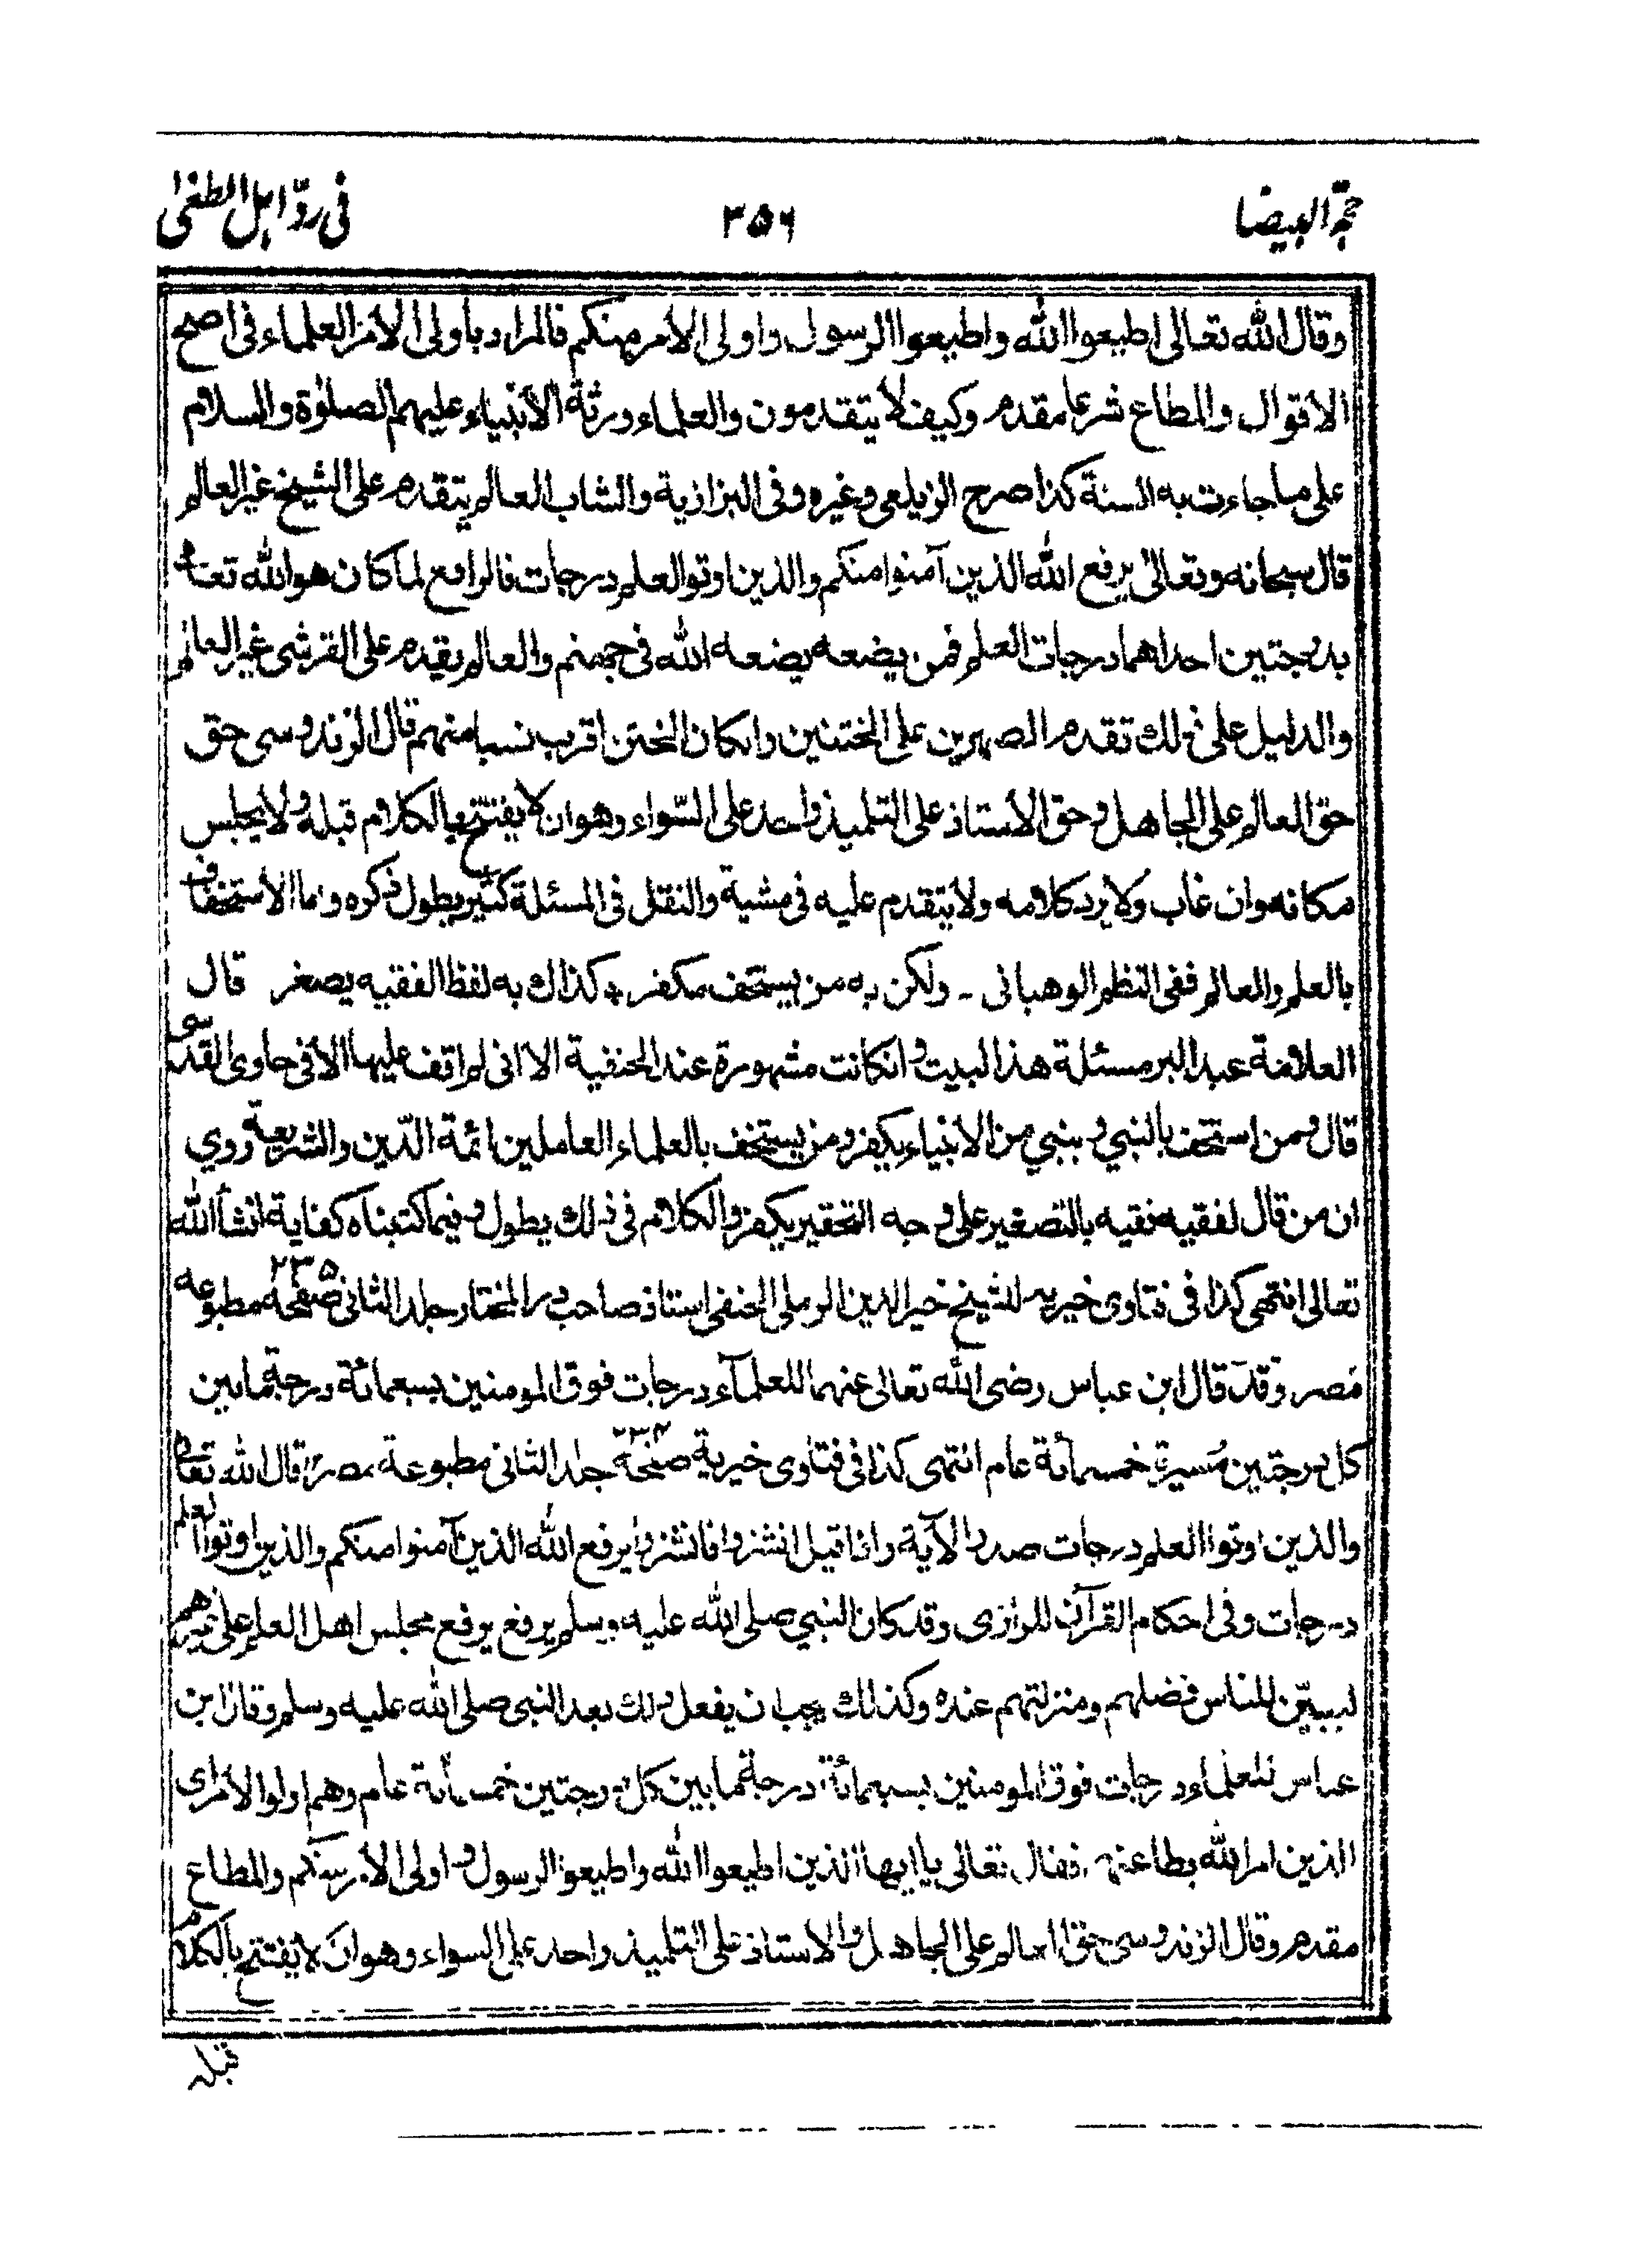 حجة البيضا ۳۵۶ فی ردّ اہل الطغیٰ
وقال الله تعالى اطيعوا الله واطيعوا الرسول واولى الأمر منكم فالمراد بأولى الأمر العلماء فى اصح
الاقوال والمطاع شرعا مقدم وكيف لا يتقدمون والعلماء ورثة الأنبياء عليهم الصلوٰة والسلام
على ما جاءت به السنة كذا صرح الزيلعى وغيره وفى البزازية والشاب العالم يتقدم على الشيخ غير العالم
قال سبحانه وتعالىٰ يرفع الله الذين آمنوا منكم والذين اوتوا العلم درجات فالرافع لما كان هو الله تعالى
بدرجتين احداهما درجات العلم فمن يضعه يضعه الله فى جهنم والعالم يقدم على القرشى غير العالم
والدليل على ذلك تقدم الصهرين على الختنين وانكان الختن اقرب نسبا منهم قال الزندوسى حق
حق العالم على الجاهل وحق الأستاذ على التلميذ واحد على السّواء وهو ان لا يفتتح بالكلام قبله ولا يجلس
مكانه وان غاب ولا يرد كلامه ولا يتقدم عليه فى مشية والنقل فى المسئلة كثير يطول ذكره واما الاستخفاف
بالعلم والعالم ففى النظم الوهبانى ـ ولكن به من يستخف مكفر ٭ كذاك به لفظ الفقيه يصغر قال
العلامة عبد البر مسئلة هذا البيت وانكانت مشهورة عند الحنفية الا انى لم اقف عليها الا فى حاوى القدسى
قال ومن استخف بالنبي وبنبي من الانبياء يكفر ومن يستخف بالعلماء العاملين ائمة الدّين والشريعة وروي
ان من قال لفقيه فقيه بالتصغير على وجه التحقير يكفر والكلام فى ذلك يطول وفيما كتبناه كفاية انشأ الله
تعالى انتهى كذا فى فتاوى خيريه للشيخ خير الدين الرملى الحنفى استاذ صاحب در المختار جلد الثانى صفحه ۲۳۵ مطبوعه
مصر وقد قال ابن عباس رضى الله تعالى عنهما للعلمآء درجات فوق المومنين بسبعمائة درجة ما بين
كل درجتين مسيرة خمسمأئة عام انتهى كذا فى فتاوى خيرية صفحة ۲۳۴ جلد الثانى مطبوعة مصر قال الله تعالى
والذين اوتوا العلم درجات صدر الآية واذا قيل انشزوا فانشزوا يرفع الله الذين آمنوا منكم والذين اوتوا العلم
درجات وفى احكام القرآن للرازى وقد كان النبي صلى الله عليه وسلم يرفع يرفع مجلس اهل العلم على غيرهم
ليبيّن للناس فضلهم ومنزلتهم عنده وكذلك يجب ان يفعل ذلك بعد النبى صلى الله عليه وسلم وقال ابن
عباس للعلماء درجات فوق المومنين بسبعمائة درجة ما بين كل درجتين خمسمأئة عام وهم اولوا الأمر اى
الذين امر الله بطاعتهم فقال تعالى يا ايها الذين اطيعوا الله واطيعوا الرسول واولى الأمر منكم والمطاع
مقدم وقال الزندوسى حق العالم على الجاهل والاستاذ على التلميذ واحد على السواء وهو ان لا يفتتح بالكلام
قبله